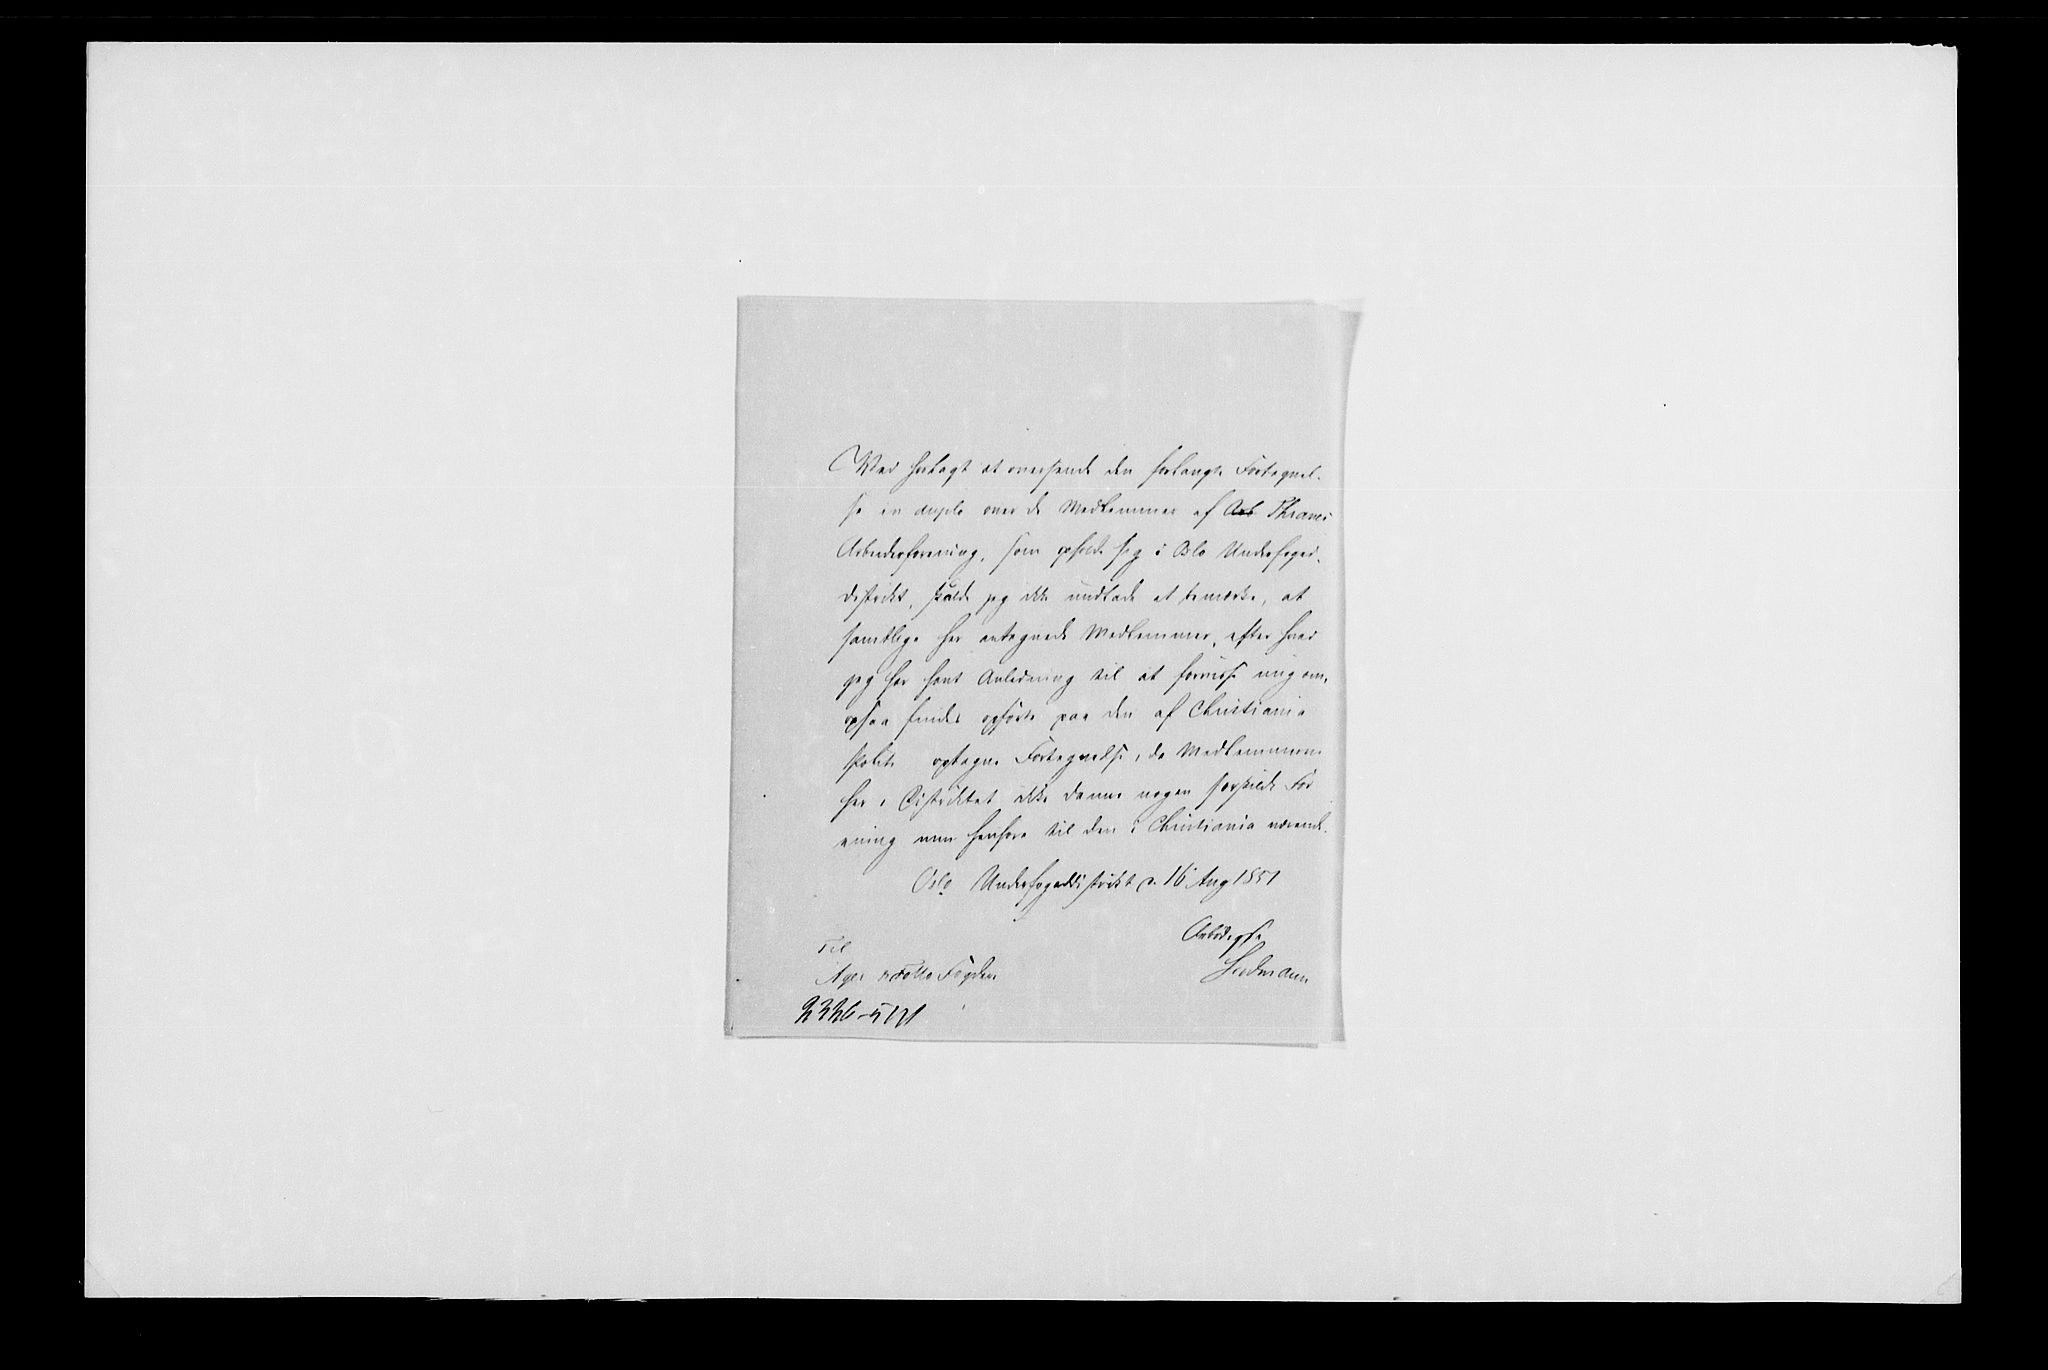 Ved herlagt at oversende den forlangte Fortegnel-
se in duplo over de Medlemmer af Arb Thranes
Arbeiderforening, som opholde sig i Oslo Underfoged-
distrikt, skulde jeg ikke undlade at bemærke, at
samtlige her antegnede Medlemmer, efter hvad
jeg har havt Anledning til at forvisse mig om,
ogsaa findes opførte paa den af Christiania
Politi optagne Fortegnelse, da Medlemmerne
her i Distriktet ikke danne nogen særskilt For
ening men henhøre til den i Christiania værende.
Oslo Underfogeddistrikt d. 16 Aug 1851
Ærbødigst
Til
Agers & Follo Fogderi